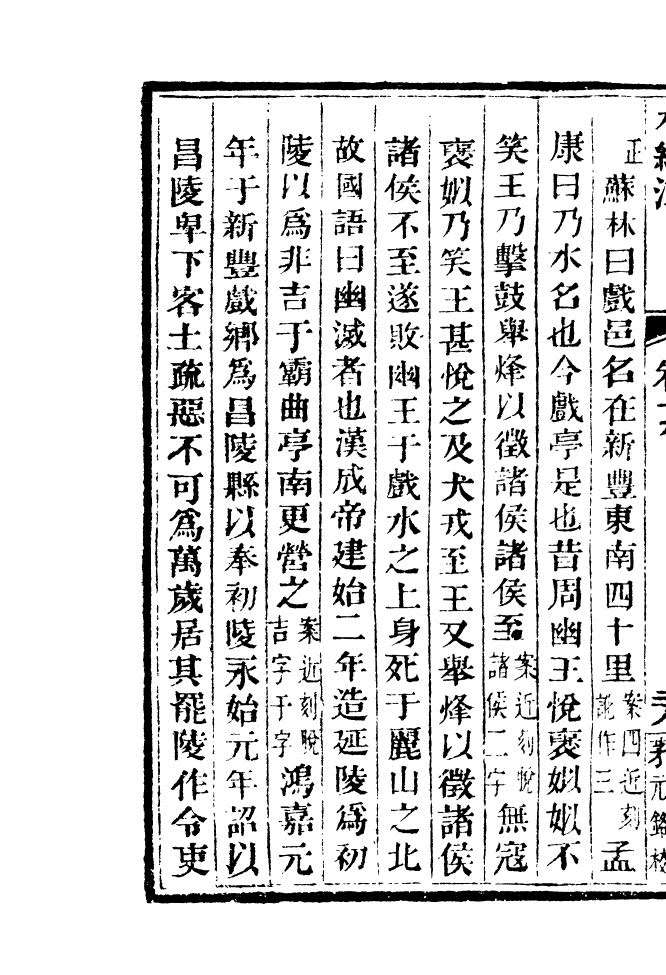 水經注 卷十九
正蘇林曰戲邑名在新豐東南四十里案四近刻訛作三孟
康曰乃水名也今戲亭是也昔周幽王悅褒姒姒不
笑王乃擊鼓舉烽以徵諸侯諸侯至案近刻脫諸侯二字無寇
褒姒乃笑王甚悅之及犬戎至王又舉烽以徵諸侯
諸侯不至遂敗幽王于戲水之上身死于麗山之北
故國語曰幽滅者也漢成帝建始二年造延陵爲初
陵以爲非吉于霸曲亭南更營之案近刻脫吉字于字鴻嘉元
年于新豐戲鄉爲昌陵縣以奉初陵永始元年詔以
昌陵卑下客土疏惡不可爲萬歲居其罷陵作令吏